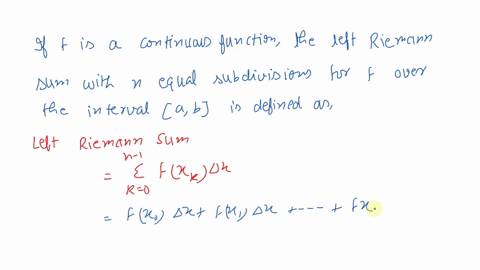 If f is a continuous function, the left Riemann
sum with n equal subdivisions for f over
the interval [a,b] is defined as,
Left Riemann Sum
n-1
= Σ f(xₖ)Δx
K=0
= f(x₀) Δx + f(x₁) Δx + --- + fx